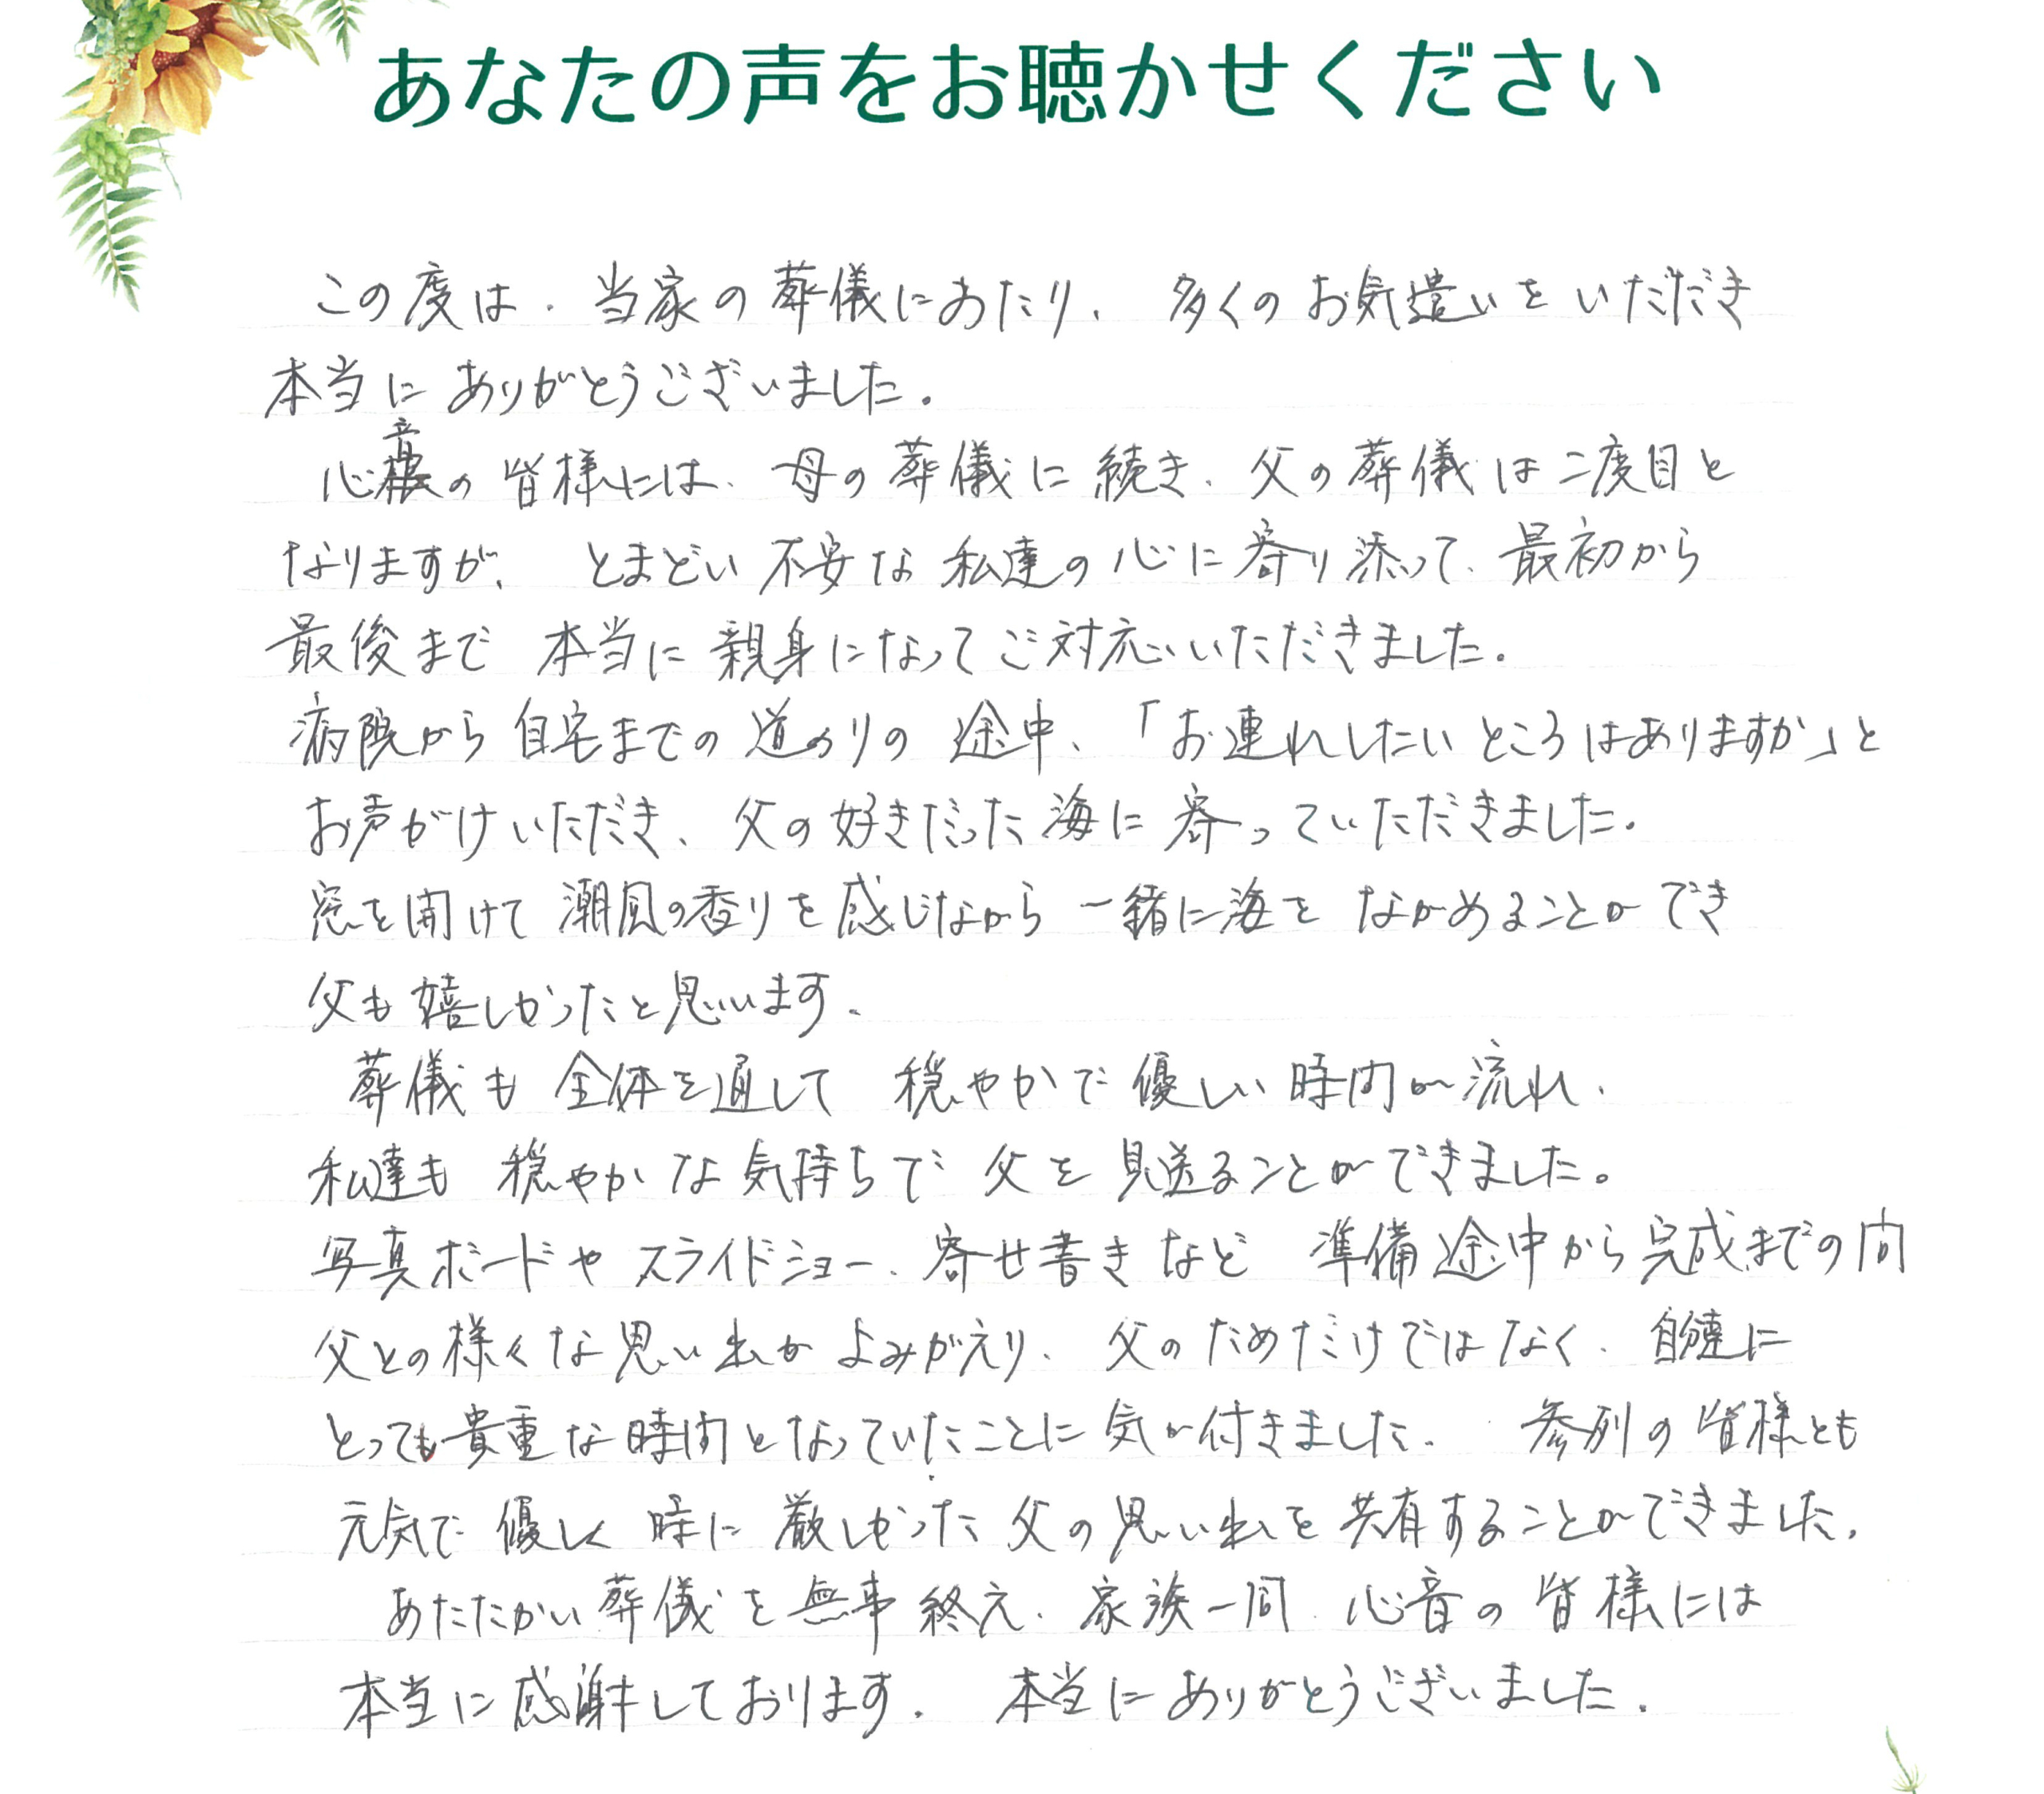 あなたの声をお聴かせください
この度は、当家の葬儀にあたり、多くのお気遣いをいただき
本当にありがとうございました。
心音の皆様には、母の葬儀に続き、父の葬儀は二度目と
なりますが、とまどい不安な私達の心に寄り添って、最初から
最後まで本当に親身になってご対応いただきました。
病院から自宅までの道のりの途中、「お連れしたいところはありますか」と
お声がけいただき、父の好きだった海に寄っていただきました。
窓を開けて潮風の香りを感じながら一緒に海をながめることができ
父も嬉しかったと思います。
葬儀も全体を通して穏やかで優しい時間が流れ、
私達も穏やかな気持ちで父を見送ることができました。
写真ボードやスライドショー、寄せ書きなど準備途中から完成までの間
父との様々な思い出がよみがえり、父のためだけではなく、自分達に
とっても貴重な時間となっていたことに気が付きました。参列の皆様とも
元気で優しく時に厳しかった父の思い出を共有することができました。
あたたかい葬儀を無事終え、家族一同、心音の皆様には
本当に感謝しております。本当にありがとうございました。